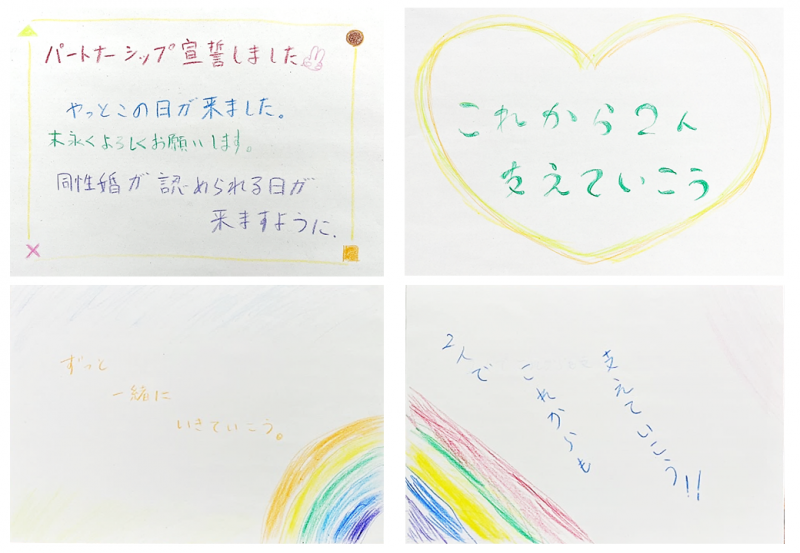 パートナーシップ宣誓しました
やっとこの日が来ました。
末永くよろしくお願いします。
同性婚が認められる日が
来ますように.
これから2人
支えていこう
ずっと
一緒に
いきていこう。
2人で
これからも
支えていこう!!